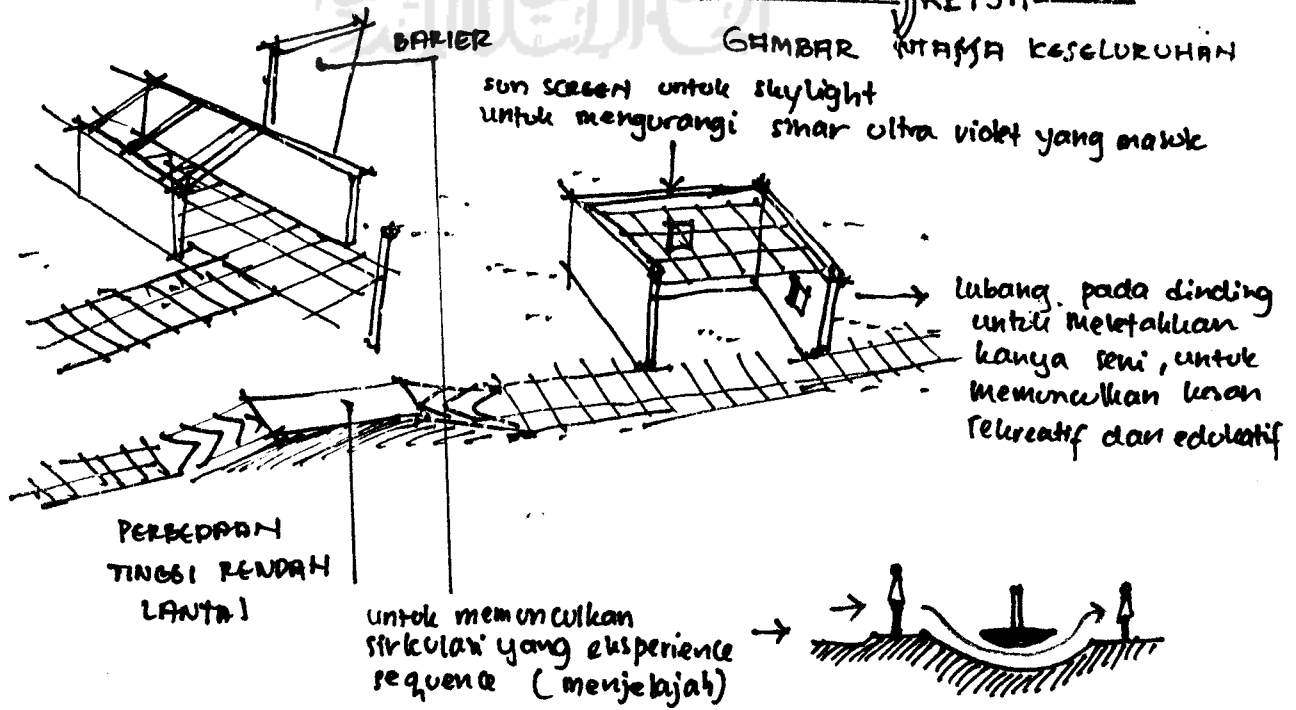 SKETSA
GAMBAR MASSA KESELURUHAN
BARIER
sun SCREEN untuk skylight
untuk mengurangi sinar ultra violet yang masuk
lubang pada dinding
untuk meletakkan
kanya seni, untuk
memunculkan kesan
rekreatif dan edukatif
PERBEDAAN
TINGGI RENDAH
LANTAI
untuk memunculkan
sirkulasi yang eksperience
sequence (menjelajah)